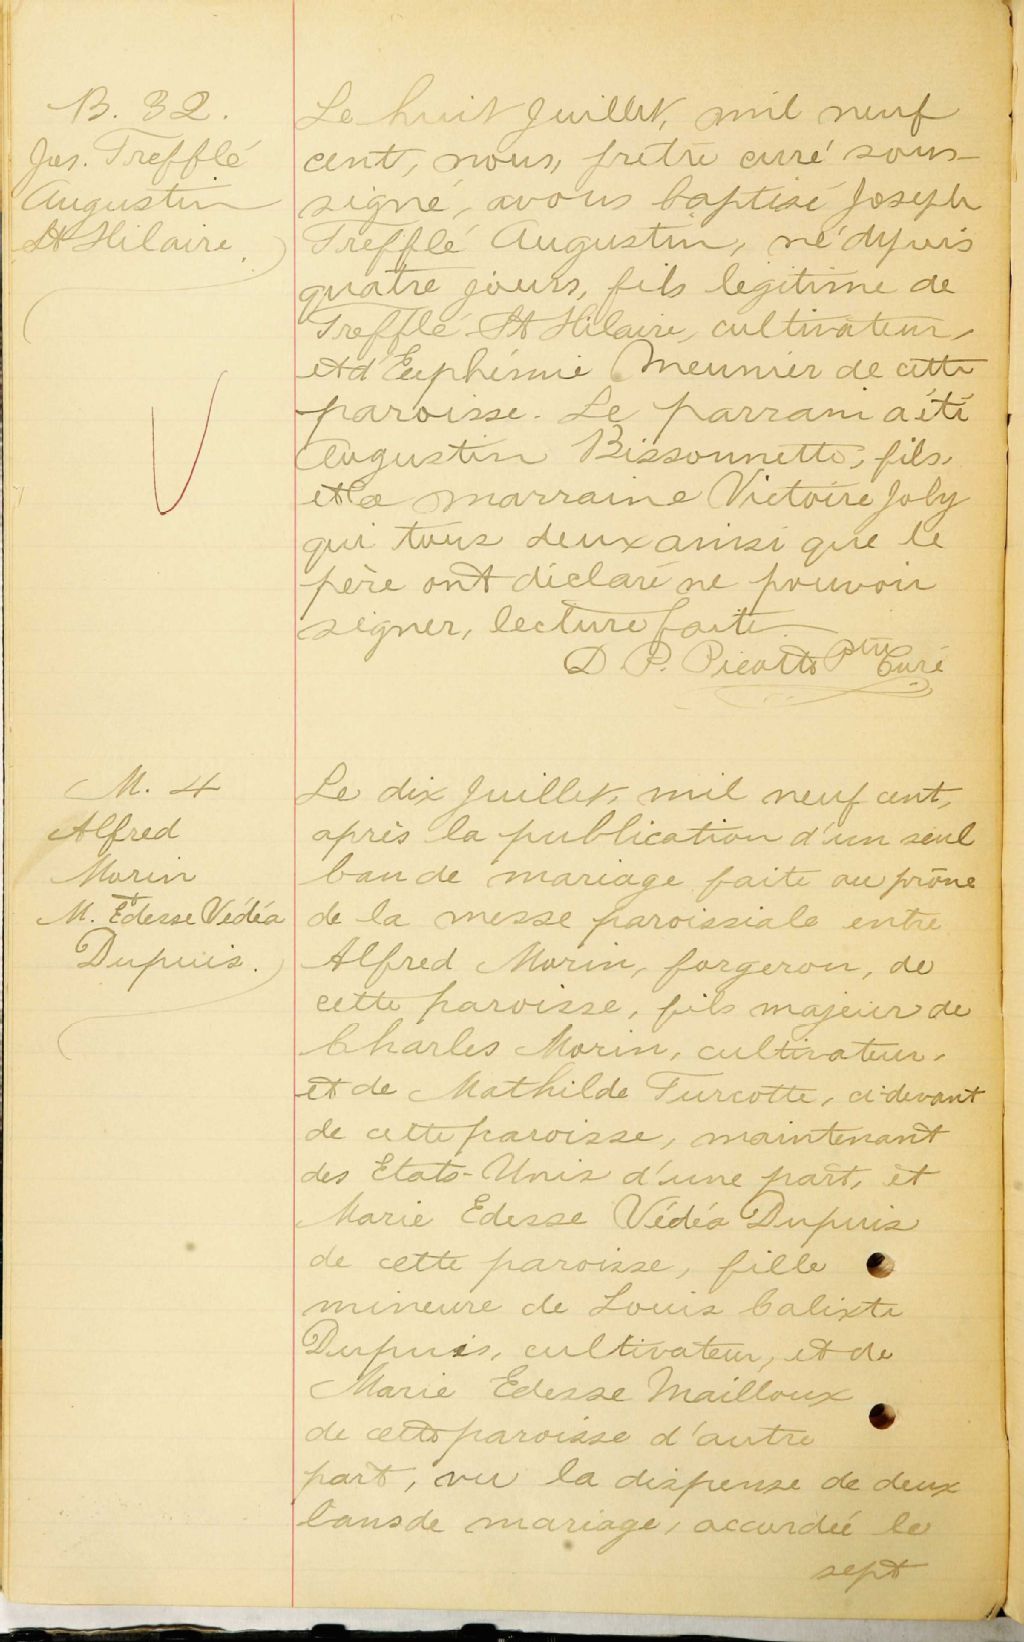 B. 32.
Jos. Trefflé
Augustin
St Hilaire.
Le huit Juillet, mil neuf
cent, nous, prêtre curé sous-
signé, avons baptisé Joseph
Trefflé Augustin, né depuis
quatre jours, fils legitime de
Trefflé St Hilaire, cultivateur,
et d'Euphémie Meunier de cette
paroisse. Le parrain a été
Augustin Bissonnette, fils,
et la marraine Victoire Joly
qui tous deux ainsi que le
père ont déclaré ne pouvoir
signer, lecture faite.
D P. Picotte Ptre Curé
M. 4
Alfred
Morin
et
M. Edesse Védéa
Dupuis.
Le dix Juillet, mil neuf cent,
après la publication d'un seul
ban de mariage faite au prône
de la messe paroissiale entre
Alfred Morin, forgeron, de
cette paroisse, fils majeur de
Charles Morin, cultivateur,
et de Mathilde Turcotte, ci-devant
de cette paroisse, maintenant
des Etats-Unis d'une part, et
Marie Edesse Védéa Dupuis
de cette paroisse, fille
mineure de Louis Calixte
Dupuis, cultivateur, et de
Marie Edesse Mailloux
de cette paroisse d'autre
part, vu la dispense de deux
bans de mariage, accordée le
sept